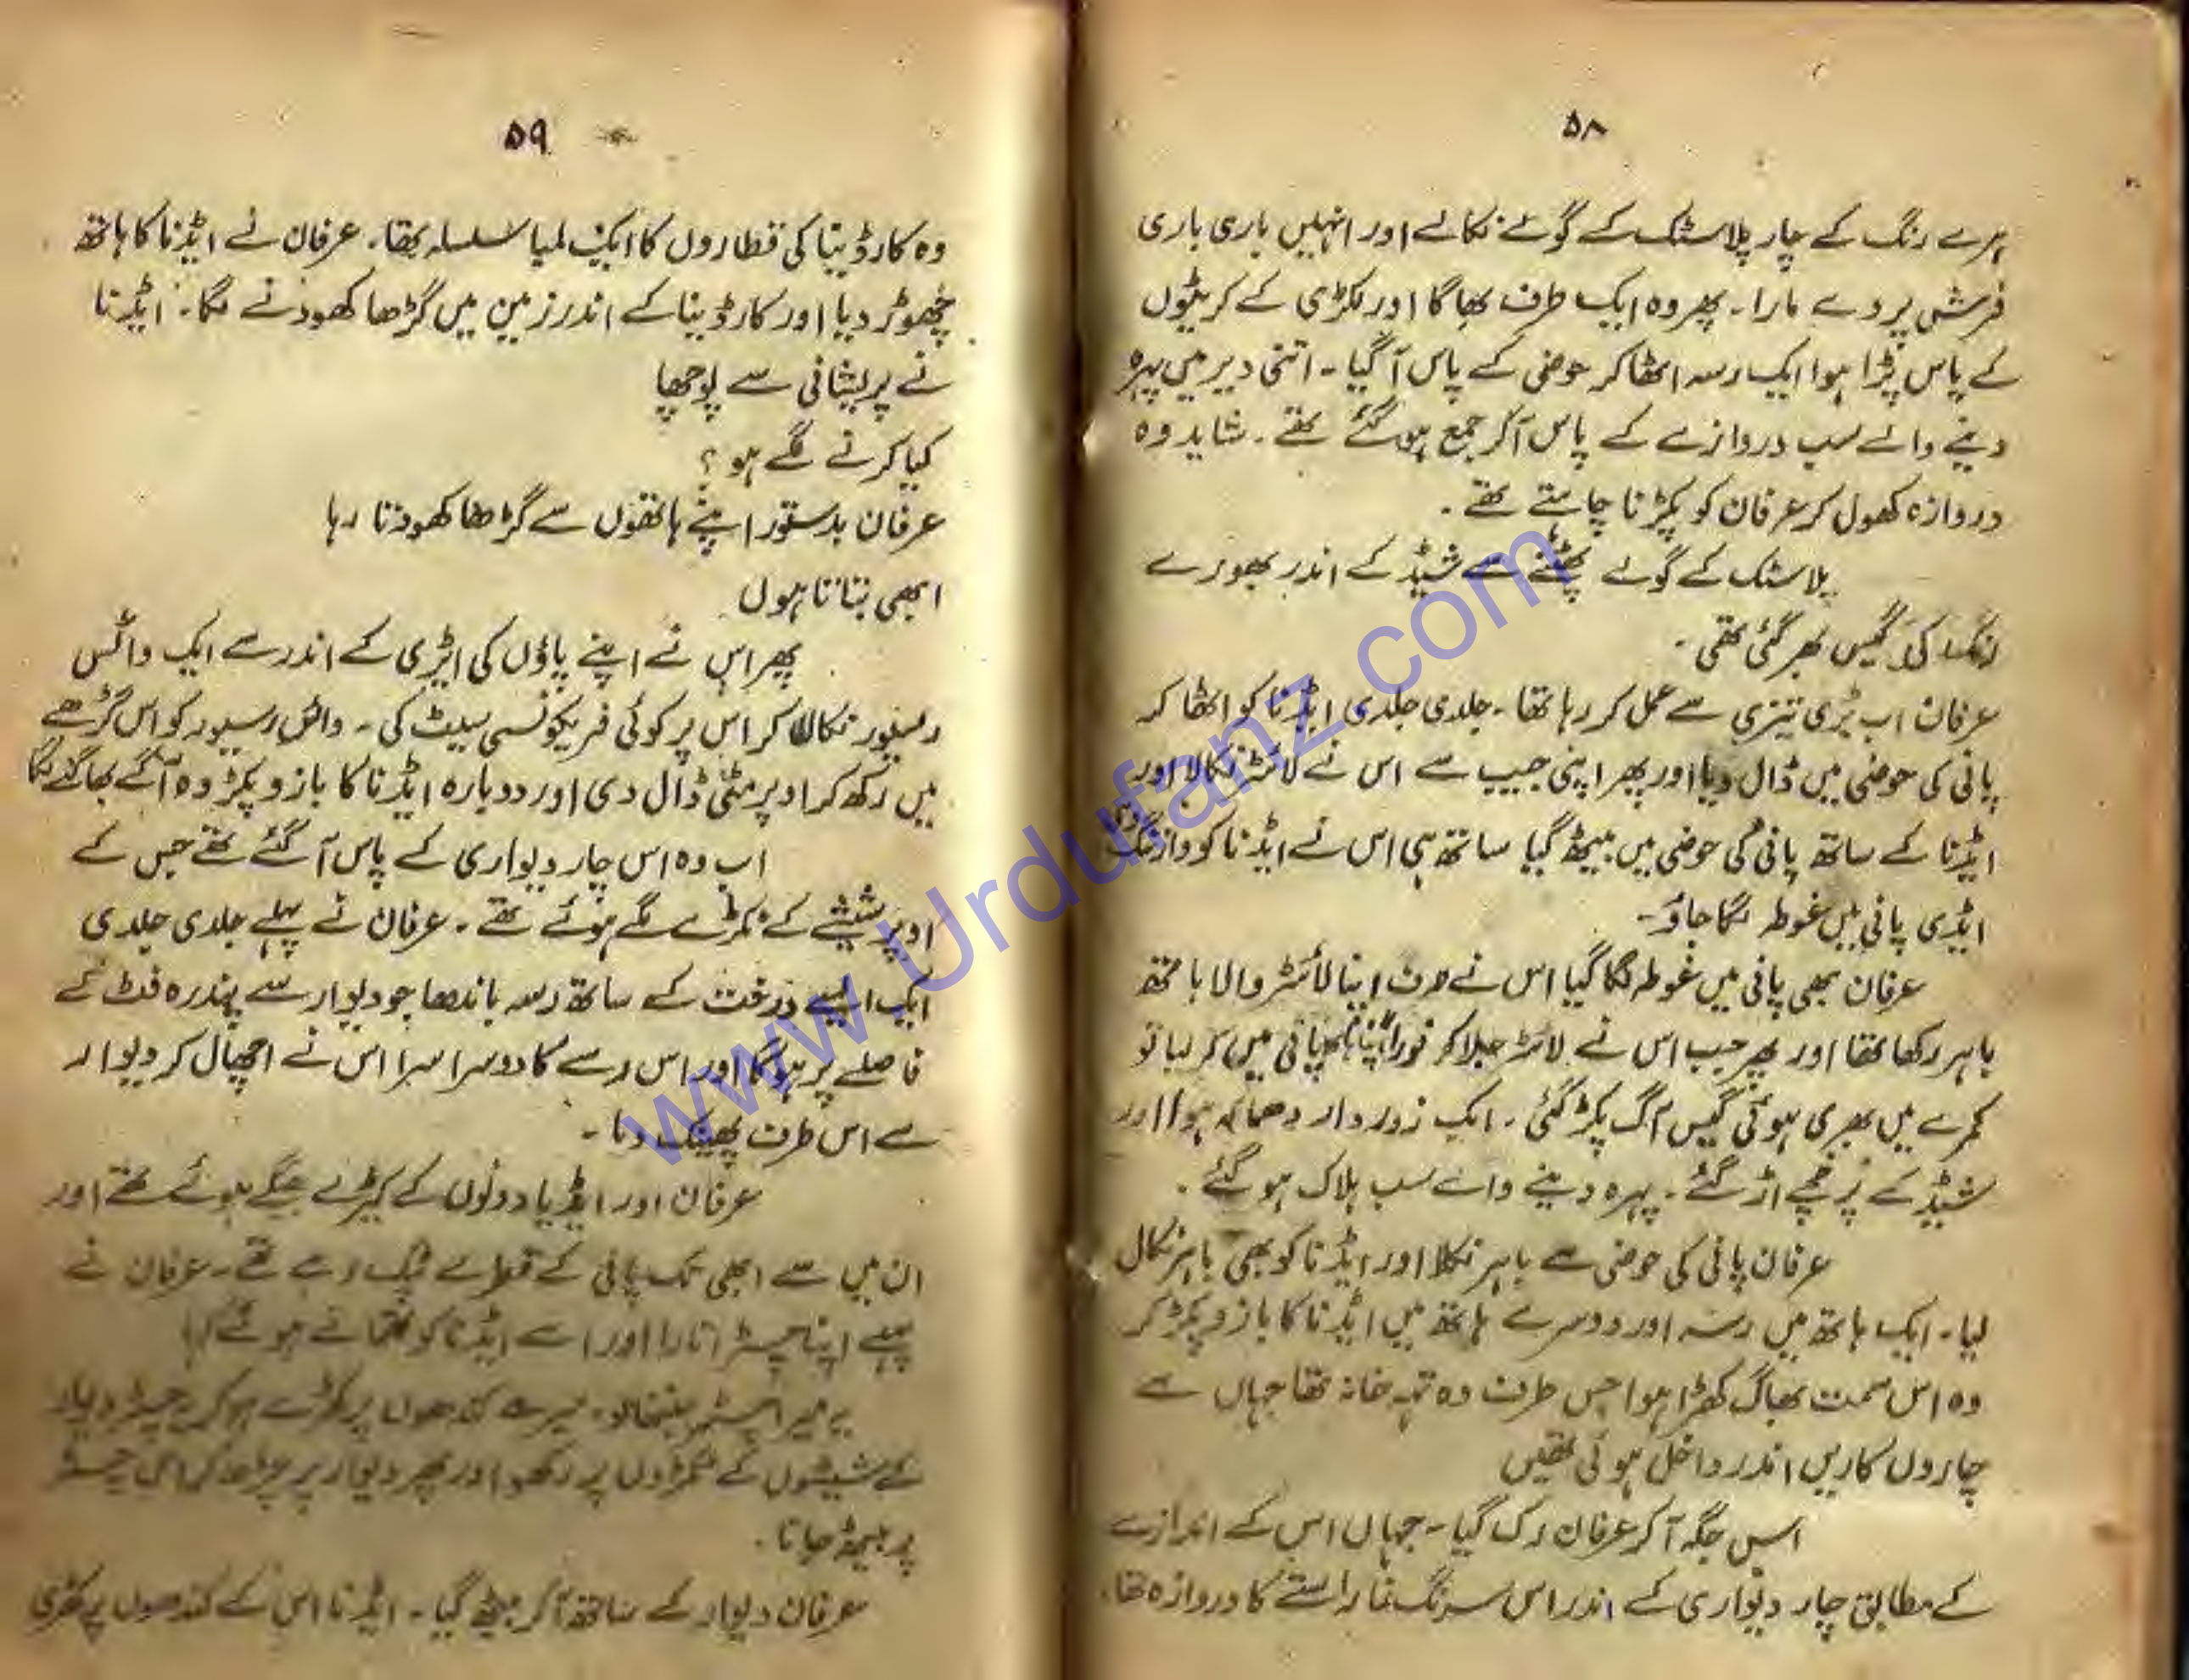 ۵۸
ہرے رنگ کے چار پلاسٹک کے گولے نکالے اور انہیں باری باری
فرش پر دے مارا۔ پھر وہ ایک طرف بھاگا اور لکڑی کے کریٹوں
کے پاس پڑا ہوا ایک رسہ اٹھا کر حوض کے پاس آگیا۔ اتنی دیر میں پہرہ
دینے والے سب دروازے کے پاس آکر جمع ہوگئے تھے۔ شاید وہ
دروازہ کھول کر عرفان کو پکڑنا چاہتے تھے۔
پلاسٹک کے گولے پھٹنے سے شیڈ کے اندر بھورے
رنگ کی گیس بھر گئی تھی۔
عرفان اب بڑی تیزی سے عمل کر رہا تھا۔ جلدی جلدی ایڈنا کو اٹھا کر
پانی کی حوض میں ڈال دیا اور پھر اپنی جیب سے اس نے لائٹر نکالا اور
ایڈنا کے ساتھ پانی کی حوض میں بیٹھ گیا ساتھ ہی اس نے ایڈنا کو وارننگ دی
ایڈی پانی میں غوطہ لگا جاؤ۔
عرفان بھی پانی میں غوطہ لگا گیا اس نے صرف اپنا لائٹر والا ہاتھ
باہر رکھا تھا اور پھر جب اس نے لائٹر جلا کر فوراً اپنا ہاتھ پانی میں کر لیا تو
کمرے میں بھری ہوئی گیس آگ پکڑ گئی۔ ایک زوردار دھماکہ ہوا اور
شیڈ کے پرخچے اڑ گئے۔ پہرہ دینے والے سب ہلاک ہو گئے۔
عرفان پانی کی حوض سے باہر نکلا اور ایڈنا کو بھی باہر نکال
لیا۔ ایک ہاتھ میں رسہ اور دوسرے ہاتھ میں ایڈنا کا بازو پکڑ کر
وہ اس سمت بھاگ کھڑا ہوا جس طرف وہ تہہ خانہ تھا جہاں سے
چاروں کاریں اندر داخل ہوئی تھیں
اس جگہ آکر عرفان رک گیا۔ جہاں اس کے اندازے
کے مطابق چار دیواری کے اندر اس سرنگ نما راستے کا دروازہ تھا۔
۵۹
وہ کارڈینا کی قطاروں کا ایک لمبا سلسلہ تھا۔ عرفان نے ایڈنا کا ہاتھ
چھوڑ دیا اور کارڈینا کے اندر زمین میں گڑھا کھودنے لگا۔ ایڈنا
نے پریشانی سے پوچھا
کیا کرنے لگے ہو ؟
عرفان بدستور اپنے ہاتھوں سے گڑھا کھودتا رہا
ابھی بتاتا ہوں
پھر اس نے اپنے پاؤں کی ایڑی کے اندر سے ایک وائس
رسیور نکالا کر اس پر کوئی فریکونسی سیٹ کی۔ وائس رسیور کو اس گڑھے
میں رکھ کر اوپر مٹی ڈال دی اور دوبارہ ایڈنا کا بازو پکڑ وہ آگے بھاگنے لگا
اب وہ اس چار دیواری کے پاس آگئے تھے جس کے
اوپر شیشے کے ٹکڑے لگے ہوئے تھے۔ عرفان نے پہلے جلدی جلدی
ایک ایسے درخت کے ساتھ رسہ باندھا جو دیوار سے پندرہ فٹ کے
فاصلے پر ہوگا اور اس رسے کا دوسرا سرا اس نے اچھال کر دیوار
سے اس طرف پھینک دیا۔
عرفان اور ایڈیا دونوں کے کپڑے بھیگے ہوئے تھے اور
ان میں سے ابھی تک پانی کے قطرے ٹپک رہے تھے۔ عرفان نے
پہلے اپنا چسٹر اتارا اور اسے ایڈنا کو تھماتے ہوئے کہا
یہ میرا چسٹر سنبھالو۔ میرے کندھوں پر کھڑے ہو کر یہ چسٹر دیوار
کے شیشوں کے ٹکڑوں پر رکھو اور پھر دیوار پر چڑھ کر اس چسٹر
پر بیٹھ جانا۔
عرفان دیوار کے ساتھ آکر بیٹھ گیا۔ ایڈنا اس کے کندھوں پر کھڑی
www.Urdufanz.com